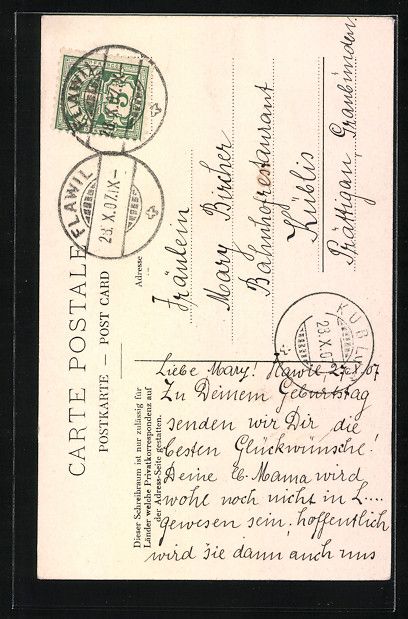 CARTE POSTALE
POSTKARTE — POST CARD
Dieser Schreibraum ist nur zulässig für
Länder welche Privatkorrespondenz auf
der Adress-Seite gestatten.
Adresse
Fräulein
Mary Bircher
Bahnhofrestaurant
Küblis
Prättigau, Graubünden
FLAWIL
FLAWIL
23.X.07.IX-
KÜBLIS
23.X.07
5
Liebe Mary! Flawil 23.X.07
Zu Deinem Geburtstag
senden wir Dir die
besten Glückwünsche!
Deine lb. Mama wird
wohl noch nicht in L....
gewesen sein, hoffentlich
wird sie dann auch uns